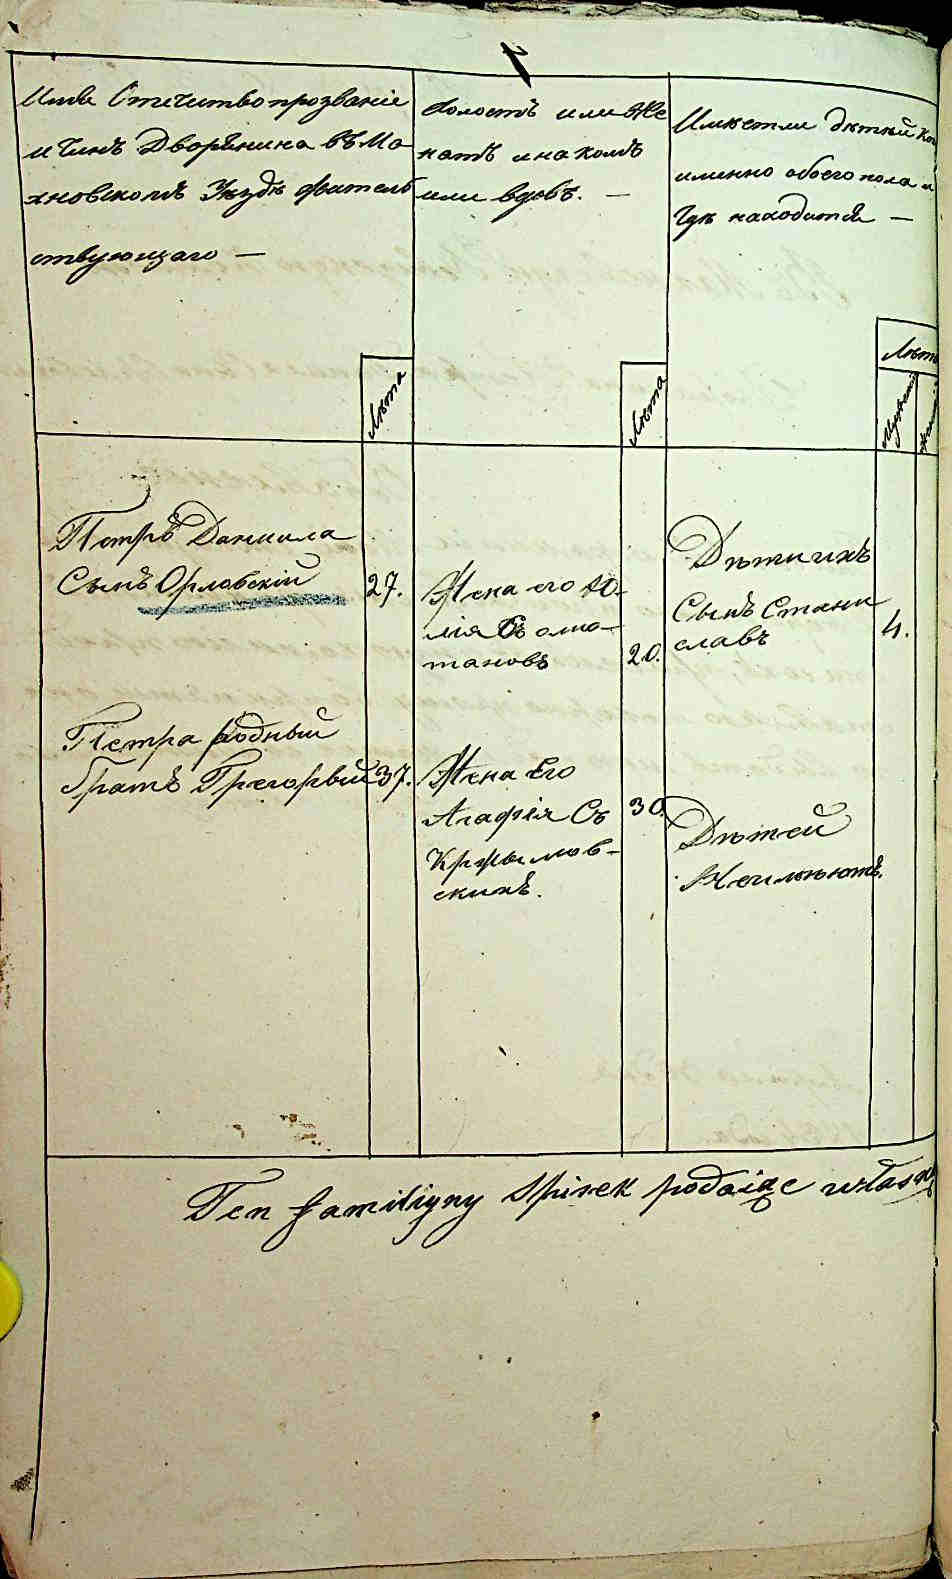 1
Имя Отечество прозваніе
и Чинъ Дворянина въ Ма
хновскомъ Уездѣ жител
ствующаго —
Лѣта
Холостъ или Же
натъ и на комъ
или вдовъ. —
Лѣта
Имѣетли дѣтей
именно обоего пола и
Где находится —
Лѣт
Петръ Данила
Сынъ Орловскій
27.
Жена его Ю-
лія Съ
тановъ
20.
Дѣти ихъ
Сынъ Стани
славъ
4.
Петра родный
Братъ Грегорій
37.
Жена Его
Агафія Съ
Кржымов-
скихъ.
30.
Дѣтей
Неимѣютъ.
Ten familijny Spisek podaiąc